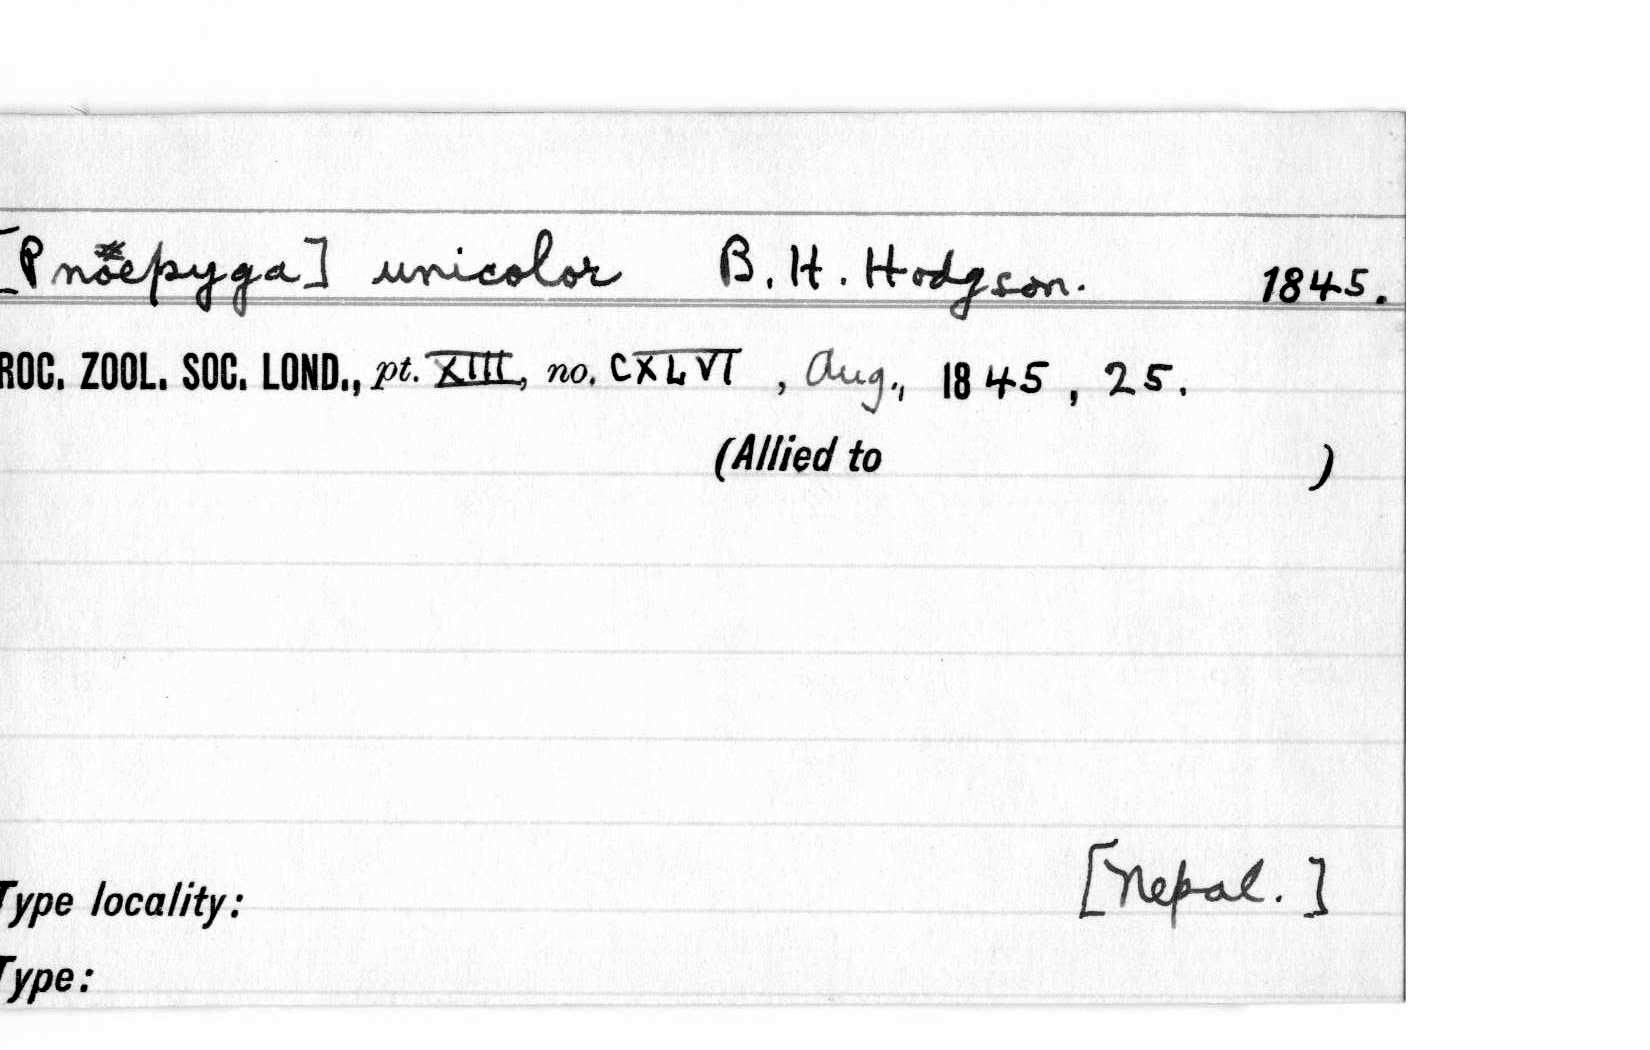 [Pnoepyga] unicolor B. H. Hodgson. 1845.
ROC. ZOOL. SOC. LOND., pt. XIII, no. CXLVI , Aug., 1845 , 25.
(Allied to )
[Nepal. ]
Type locality:
Type: